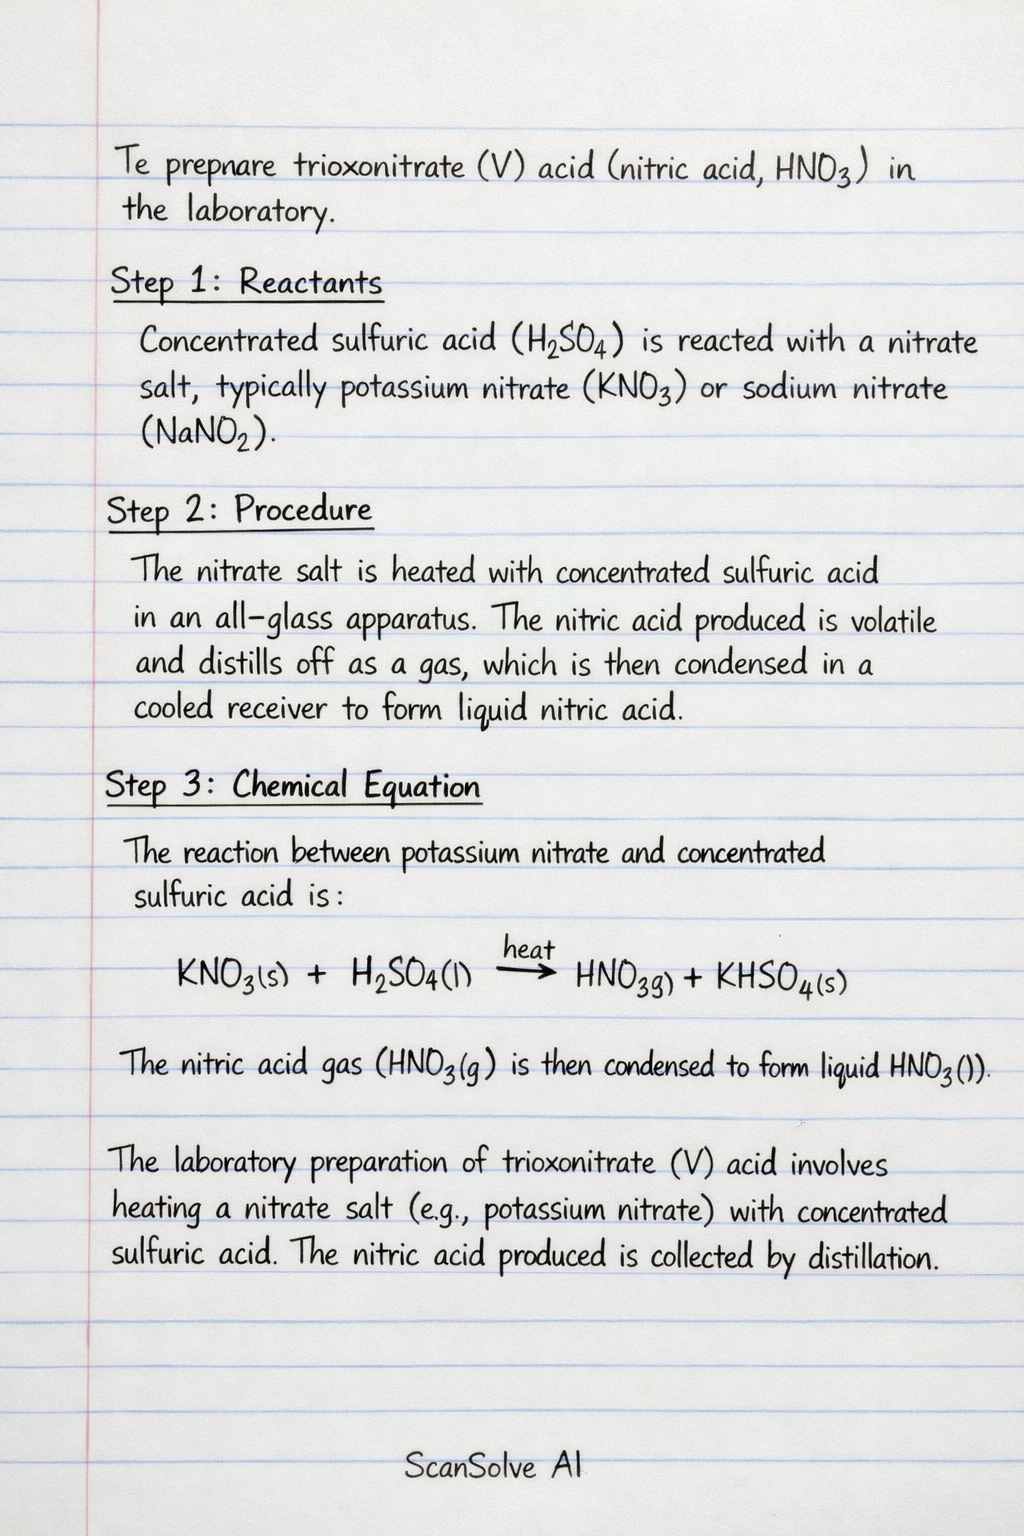 Te prepnare trioxonitrate (V) acid (nitric acid, HNO₃) in
the laboratory.
Step 1: Reactants
Concentrated sulfuric acid (H₂SO₄) is reacted with a nitrate
salt, typically potassium nitrate (KNO₃) or sodium nitrate
(NaNO₂).
Step 2: Procedure
The nitrate salt is heated with concentrated sulfuric acid
in an all-glass apparatus. The nitric acid produced is volatile
and distills off as a gas, which is then condensed in a
cooled receiver to form liquid nitric acid.
Step 3: Chemical Equation
The reaction between potassium nitrate and concentrated
sulfuric acid is:
heat
KNO₃(s) + H₂SO₄(l) → HNO₃g) + KHSO₄(s)
The nitric acid gas (HNO₃(g) is then condensed to form liquid HNO₃()).
The laboratory preparation of trioxonitrate (V) acid involves
heating a nitrate salt (e.g., potassium nitrate) with concentrated
sulfuric acid. The nitric acid produced is collected by distillation.
ScanSolve AI